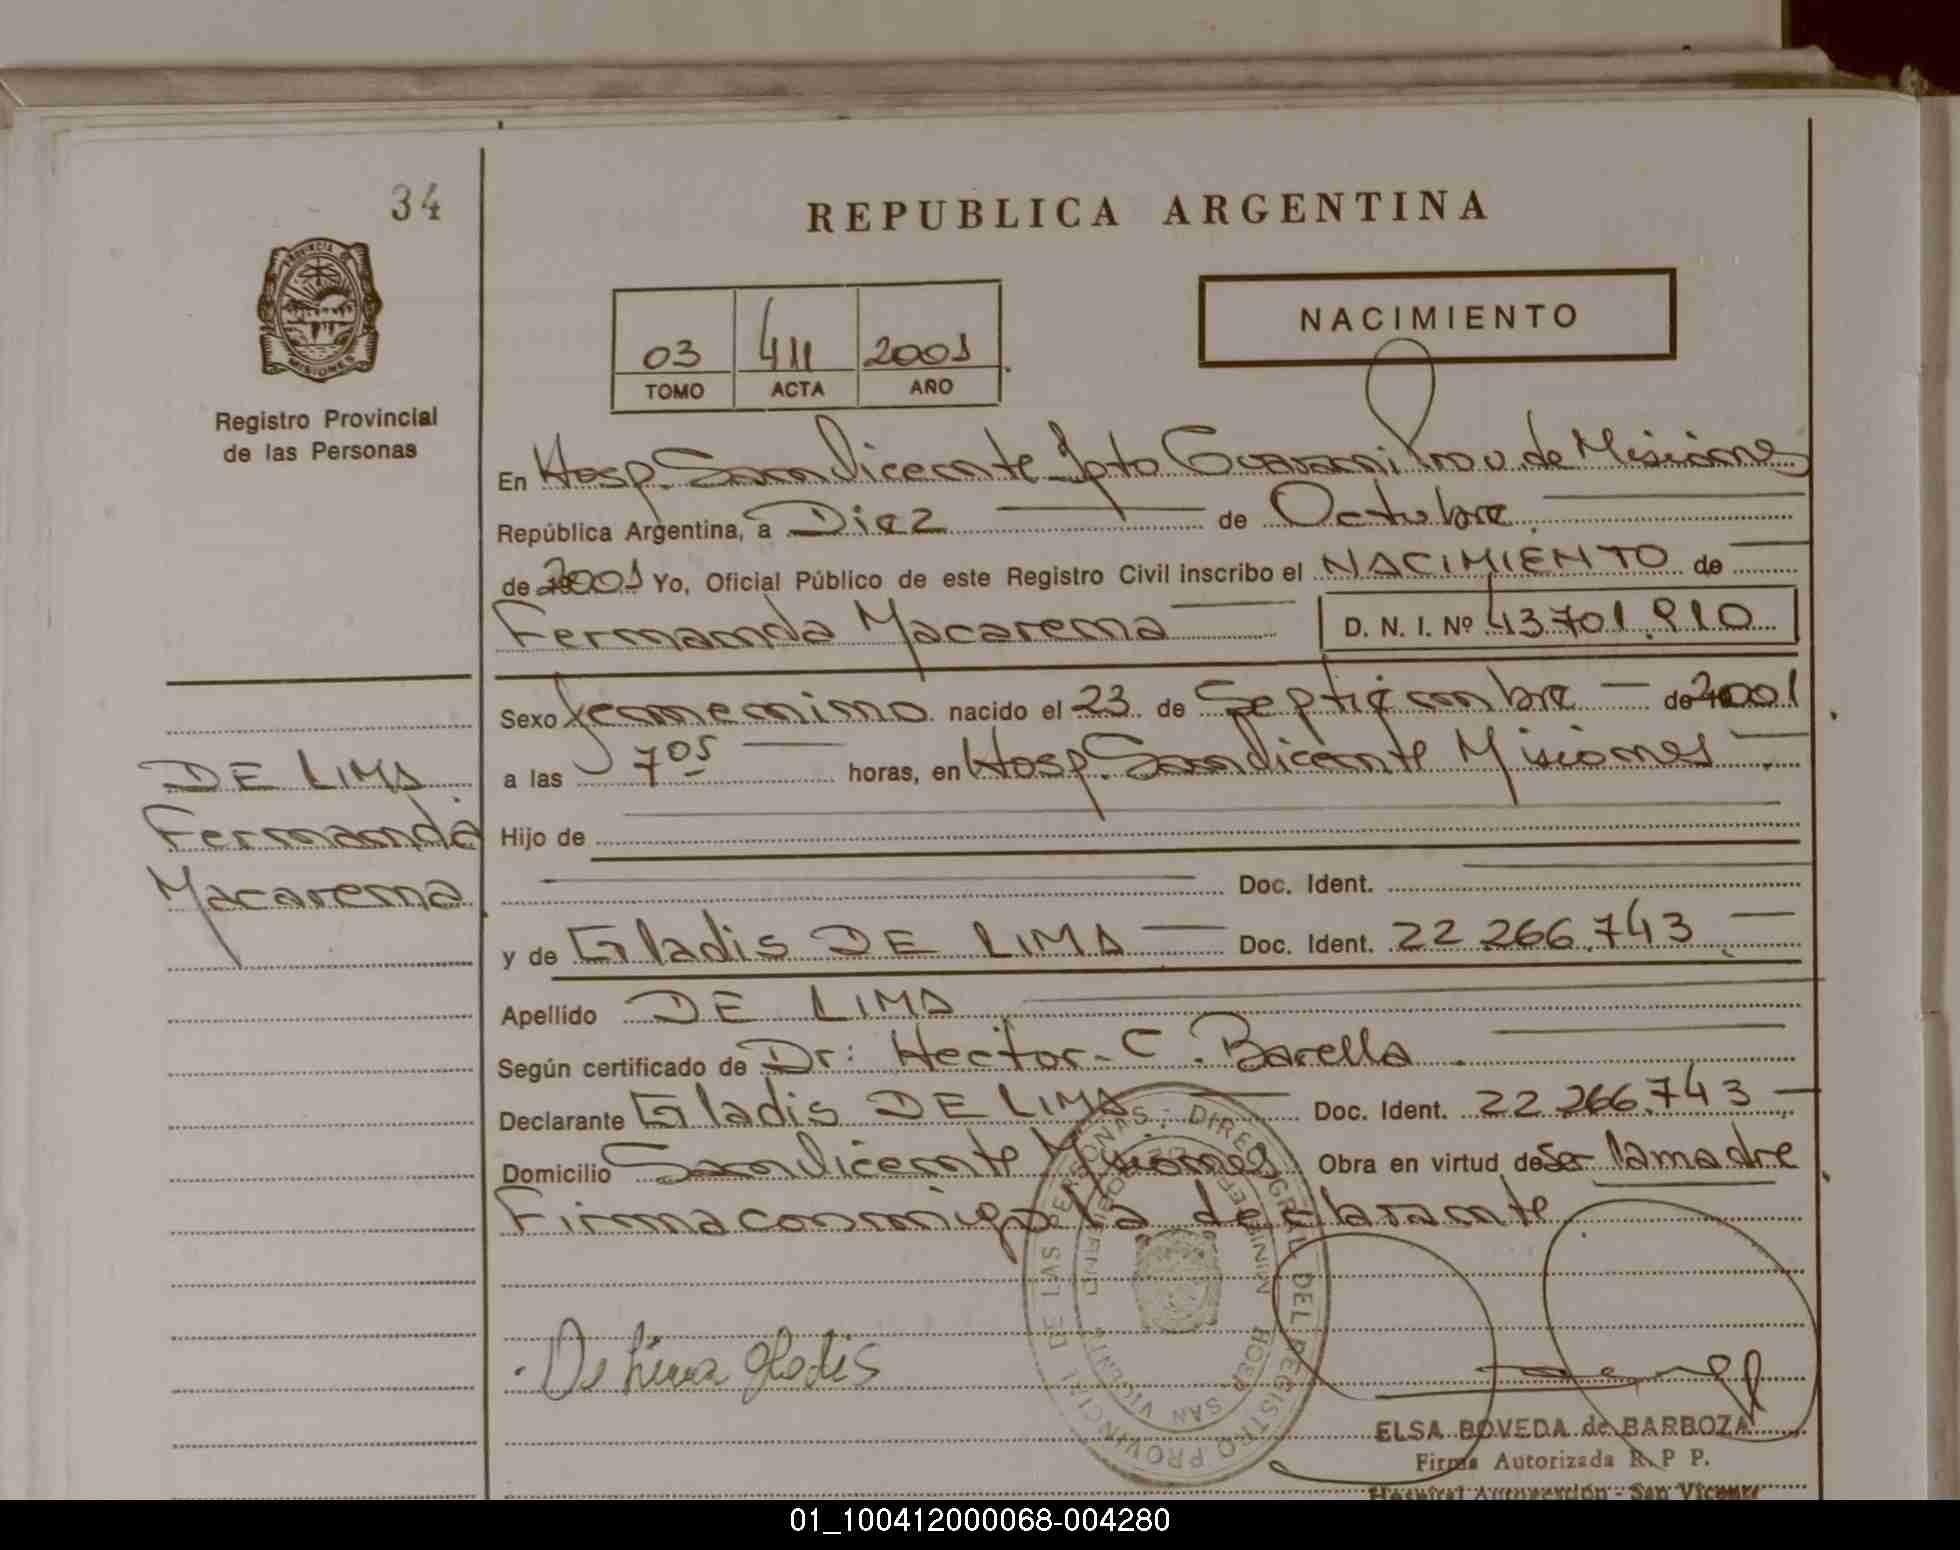 34
REPUBLICA ARGENTINA
PROVINCIA DE MISIONES
Registro Provincial
de las Personas
03 411 2001
TOMO ACTA AÑO
NACIMIENTO
En Hosp. San Vicente Dpto Guarani Prov. de Misiones
República Argentina, a Diez de Octubre
de 2001 Yo, Oficial Público de este Registro Civil inscribo el NACIMIENTO de
Fernanda Macarena D. N. I. Nº 43.701.910
Sexo femenino nacido el 23 de Septiembre de 2001
a las 7 05 horas, en Hosp. San Vicente Misiones
DE LIMA
Fernanda
Macarena
Hijo de
Doc. Ident.
y de Gladis DE LIMA Doc. Ident. 22.266.743
Apellido DE LIMA
Según certificado de Dr: Hector C. Barella
Declarante Gladis DE LIMA Doc. Ident. 22.266.743
Domicilio San Vicente Misiones Obra en virtud de Ser la madre
Firma conmigo la declarante
De Lima Gladis
DIREC. GRAL. DEL REGISTRO PROVINCIAL DE LAS PERSONAS
SAN VICENTE
ELSA BOVEDA de BARBOZA
Firma Autorizada R. P P.
Hospital Autogestión - San Vicente
01_100412000068-004280